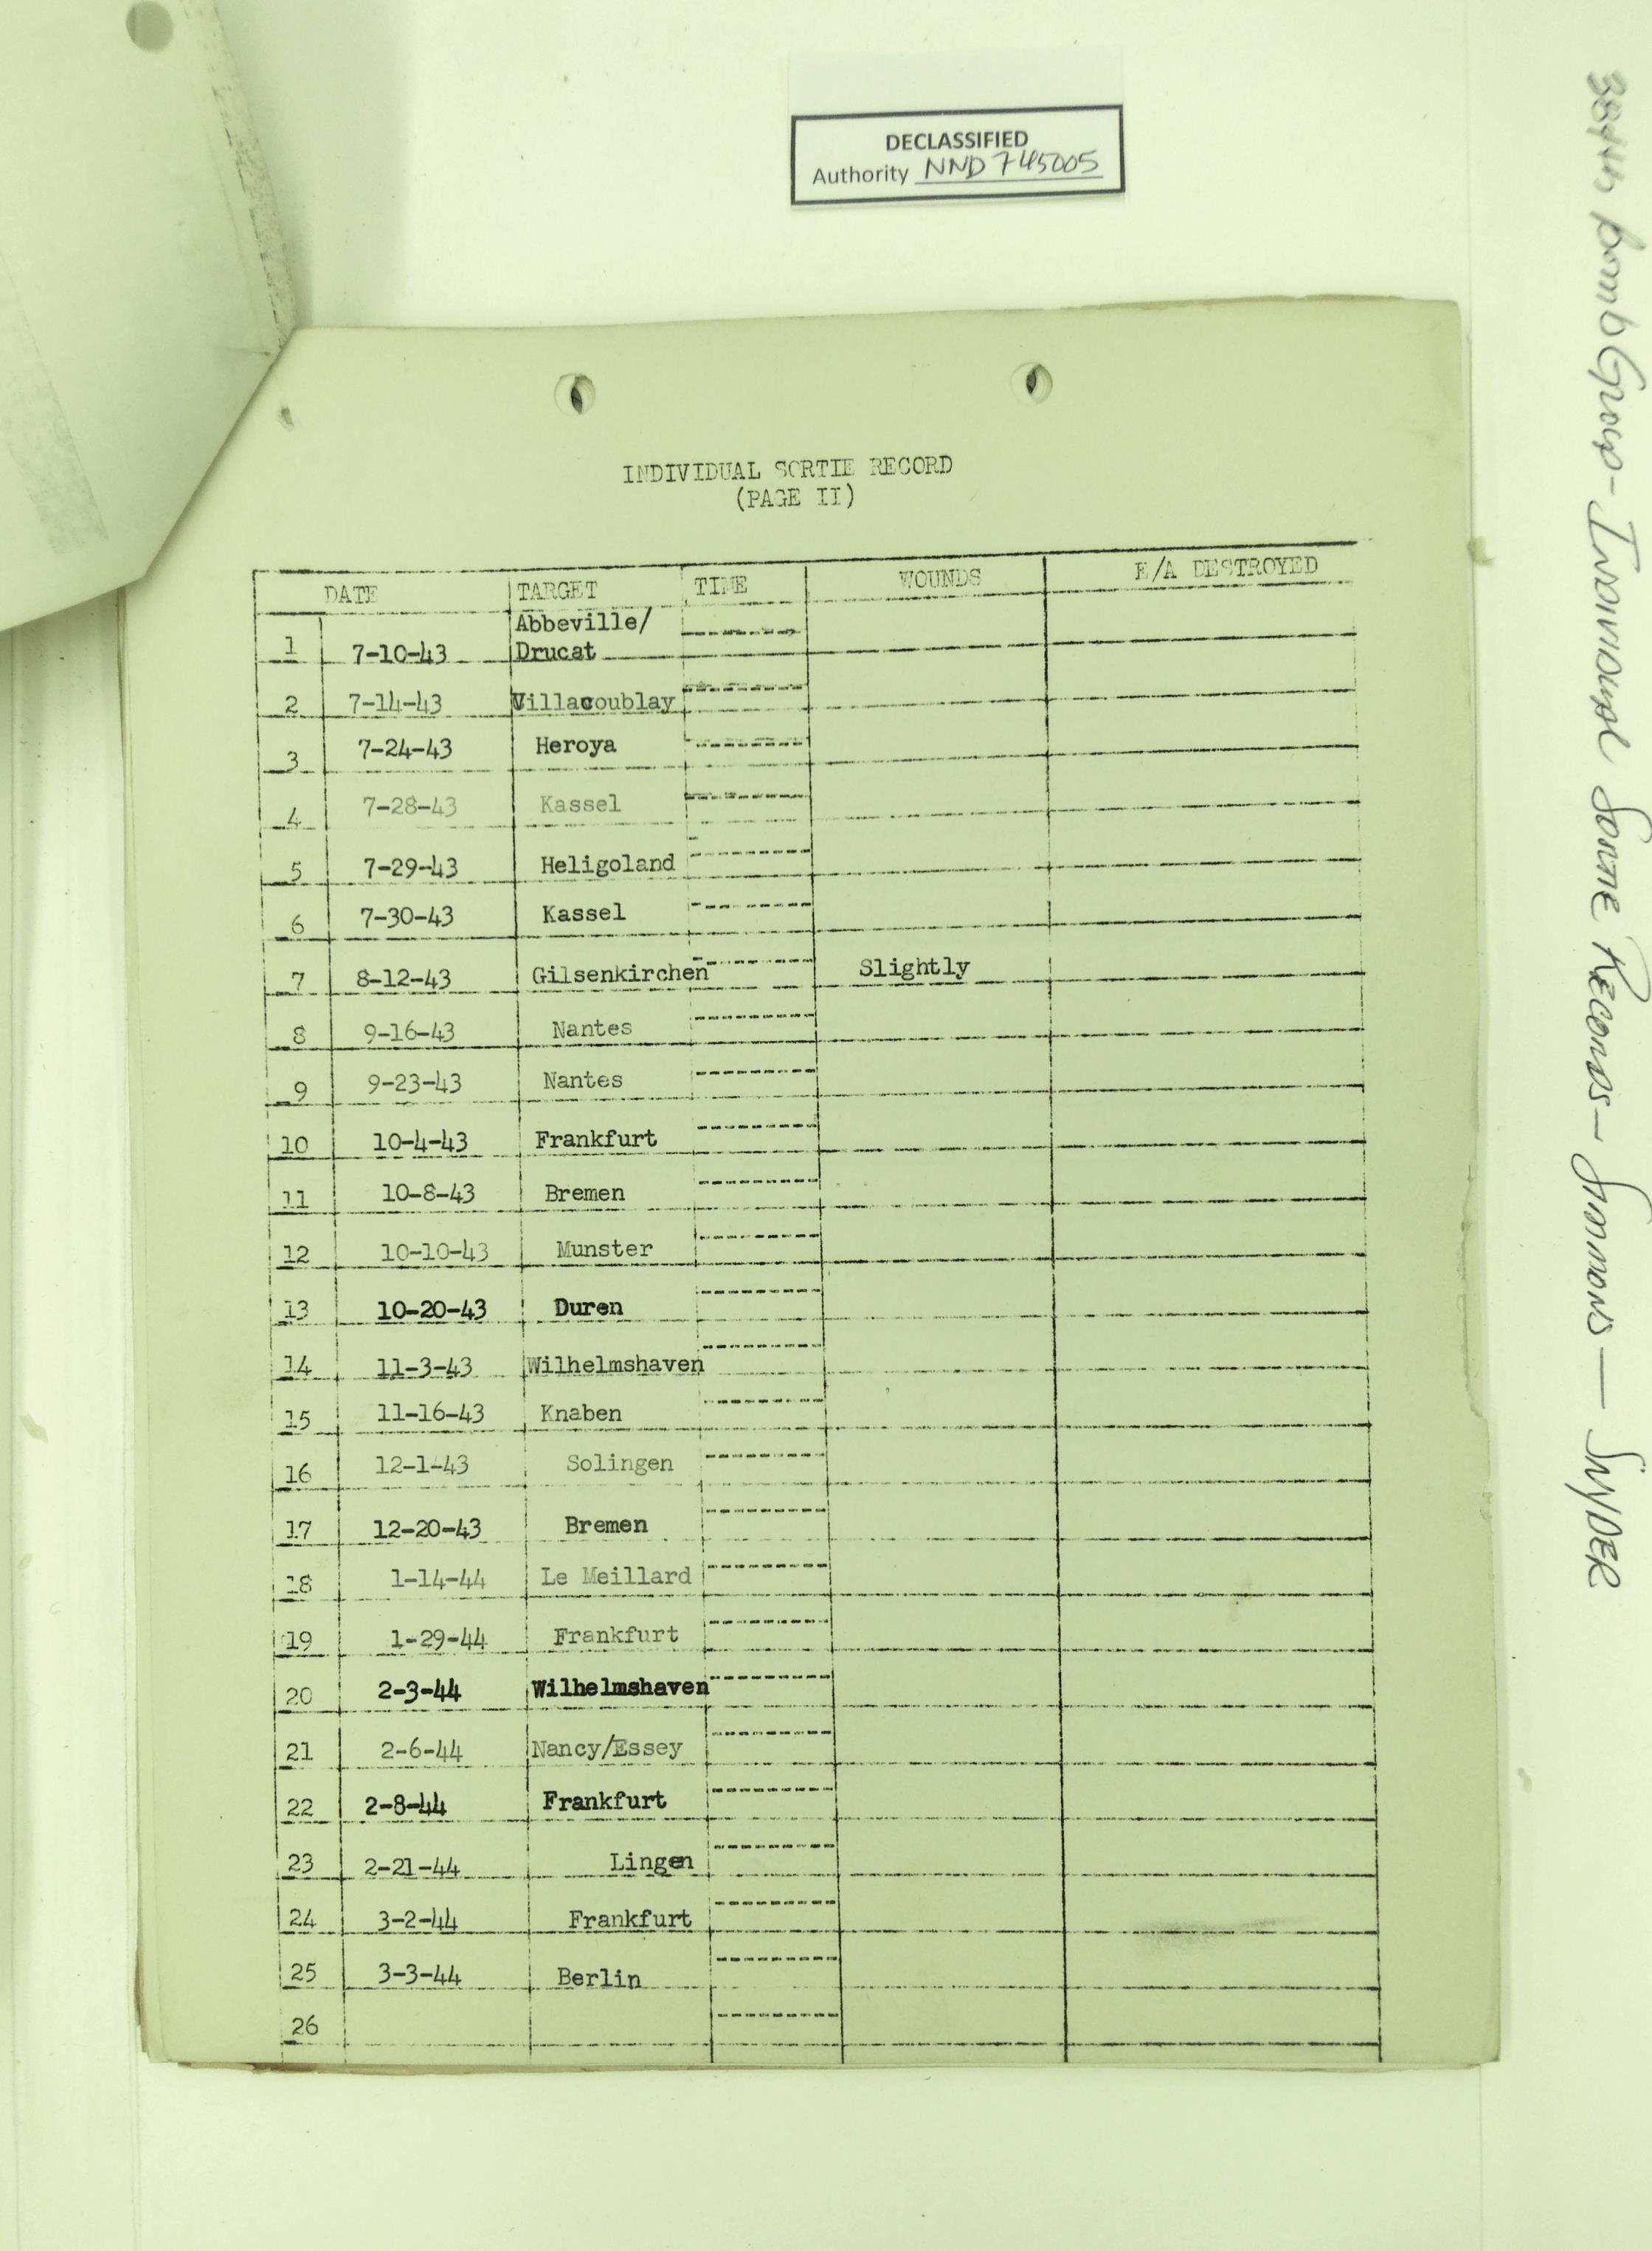 DECLASSIFIED
Authority NND 745005
INDIVIDUAL SORTIE RECORD
(PAGE II)
DATE TARGET TIME WOUNDS E/A DESTROYED
1 7-10-43 Abbeville/
Drucat
2 7-14-43 Villacoublay
3 7-24-43 Heroya
4 7-28-43 Kassel
5 7-29-43 Heligoland
6 7-30-43 Kassel
7 8-12-43 Gilsenkirchen Slightly
8 9-16-43 Nantes
9 9-23-43 Nantes
10 10-4-43 Frankfurt
11 10-8-43 Bremen
12 10-10-43 Munster
13 10-20-43 Duren
14 11-3-43 Wilhelmshaven
15 11-16-43 Knaben
16 12-1-43 Solingen
17 12-20-43 Bremen
18 1-14-44 Le Meillard
19 1-29-44 Frankfurt
20 2-3-44 Wilhelmshaven
21 2-6-44 Nancy/Essey
22 2-8-44 Frankfurt
23 2-21-44 Lingen
24 3-2-44 Frankfurt
25 3-3-44 Berlin
26
384th Bomb Group - Individual Sortie Records - Simmons - Snyder